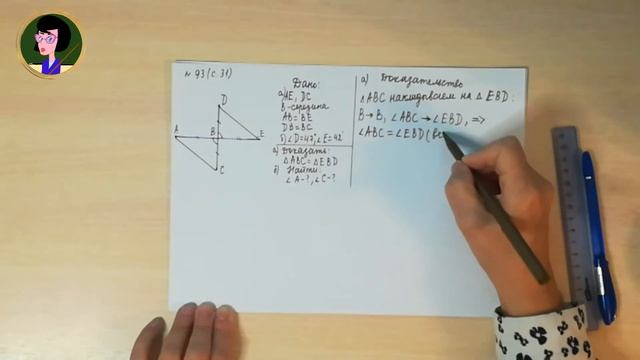 N 93 (с. 31)
D
A
B
E
C
Дано:
а) AE, DC
B-середина
AB = BE
DB = BC
б) ∠D = 47°, ∠E = 42°
а) Доказать:
△ABC = △EBD
б) Найти:
∠A-?, ∠C-?
а) Доказательство
△ABC накладываем на △EBD:
B→B, ∠ABC→∠EBD, =>
∠ABC = ∠EBD (ве